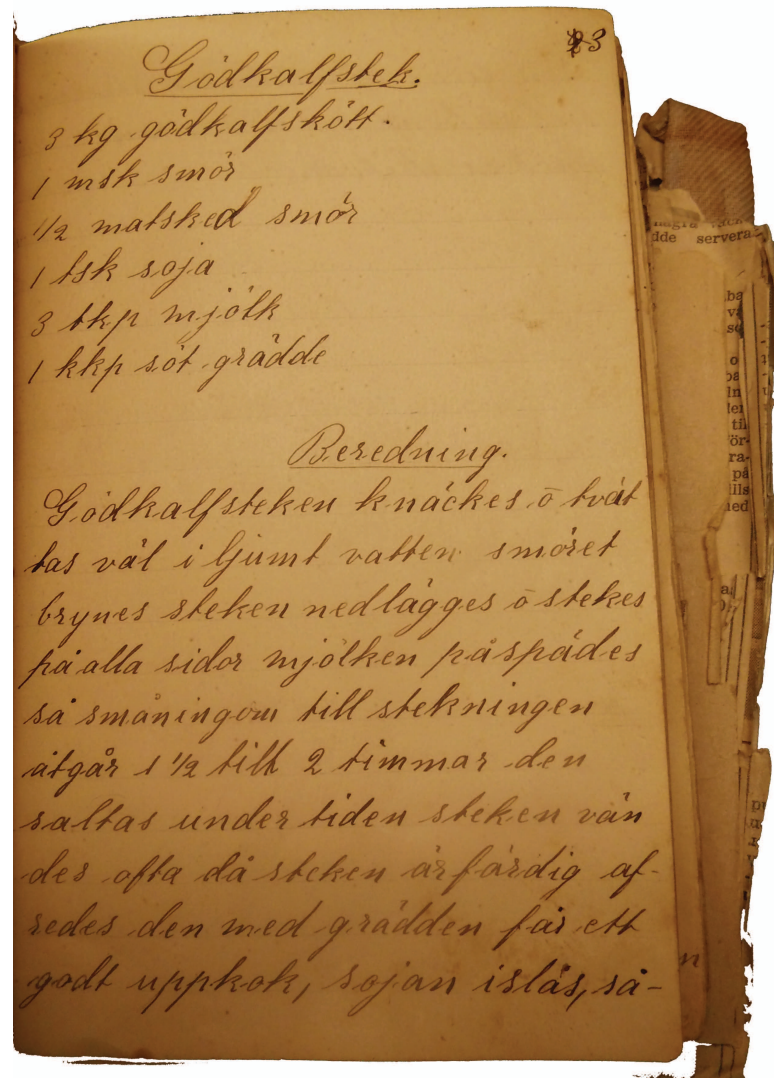 23
Gödkalfstek.
3 kg gödkalfskött.
1 msk smör
1/2 matsked smör
1 tsk soja
3 tkp mjölk
1 kkp söt grädde
Beredning.
Gödkalfsteken knäckes o tvät
tas väl i ljumt vatten smöret
brynes steken nedlägges o stekes
på alla sidor mjölken påspädes
så småningom till stekningen
åtgår 1 1/2 till 2 timmar den
saltas under tiden steken vän
des ofta då steken är färdig af-
redes den med grädden får ett
godt uppkok, sojan islås, så-
dde servera